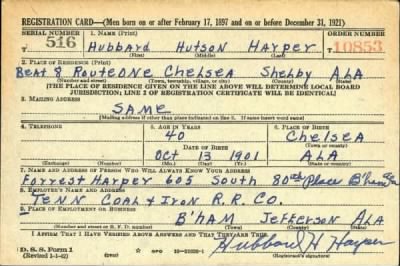 REGISTRATION CARD—(Men born on or after February 17, 1897 and on or before December 31, 1921)
SERIAL NUMBER 1. NAME (Print) ORDER NUMBER
516 Hubbard Hutson Harper 10853
(First) (Middle) (Last)
2. PLACE OF RESIDENCE (Print)
Beat 8 Route One Chelsea Shelby Ala
(Number and street) (Town, township, village, or city) (County) (State)
[THE PLACE OF RESIDENCE GIVEN ON THE LINE ABOVE WILL DETERMINE LOCAL BOARD
JURISDICTION; LINE 2 OF REGISTRATION CERTIFICATE WILL BE IDENTICAL]
3. MAILING ADDRESS
SAME
[Mailing address if other than place indicated on line 2. If same insert word same]
4. TELEPHONE 5. AGE IN YEARS 6. PLACE OF BIRTH
40 Chelsea
DATE OF BIRTH (Town or county)
Oct 13 1901 ALA
(Exchange) (Number) (Mo.) (Day) (Yr.) (State or country)
7. NAME AND ADDRESS OF PERSON WHO WILL ALWAYS KNOW YOUR ADDRESS
Forrest Harper 605 South 80th Place B'ham
8. EMPLOYER'S NAME AND ADDRESS
Tenn Coal & Iron R.R. Co.
9. PLACE OF EMPLOYMENT OR BUSINESS
B'ham Jefferson Ala
(Number and street or R. F. D. number) (Town) (County) (State)
I AFFIRM THAT I HAVE VERIFIED ABOVE ANSWERS AND THAT THEY ARE TRUE.
D. S. S. Form 1
(Revised 1-1-42) (over) Hubbard H Harper